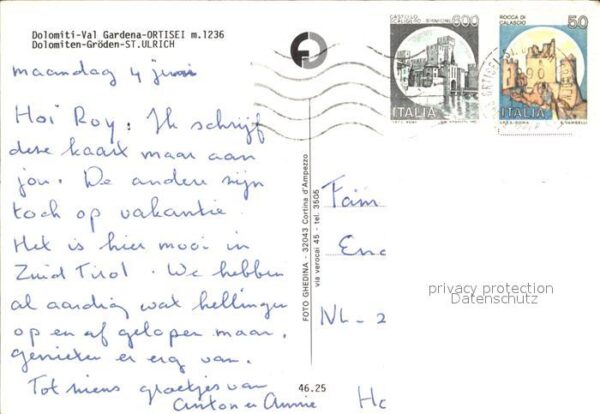 Dolomiti-Val Gardena-ORTISEI m.1236
Dolomiten-Gröden-ST.ULRICH
maandag 4 juni
Hoi Roy: Ik schrijf
deze kaart maar aan
jou. De andere zijn
toch op vakantie.
Het is hier mooi in
Zuid Tirol. We hebben
al aardig wat hellingen
op en af gelopen maar,
genieten er erg van.
Tot ziens groetjes van
Anton en Annie
FOTO GHEDINA - 32043 Cortina d'Ampezzo
via verocai 45 - tel. 3505
46.25
CASTELLO SCALIGERO - SIRMIONE
600
ITALIA
ROCCA DI CALASCIO
50
ITALIA
ORTISEI
Fam
En
NL - 2
Ho
privacy protection
Datenschutz